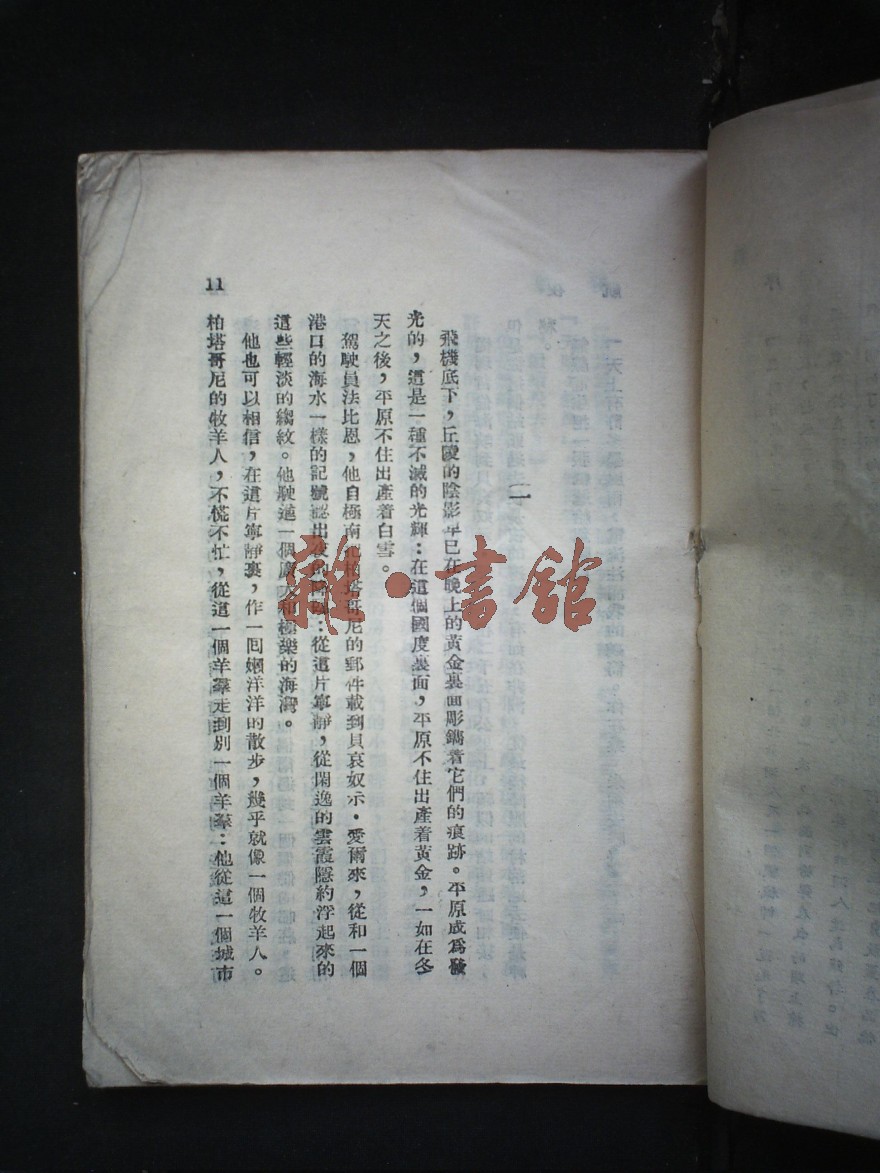 一
飛機底下，丘陵的陰影早已在晚上的黃金裏面彫鐫着它們的痕跡。平原成爲發
光的，這是一種不滅的光輝：在這個國度裏面，平原不住出產着黃金，一如在冬
天之後，平原不住出產着白雪。
駕駛員法比恩，他自極南把柏塔哥尼的郵件載到貝哀奴示・愛爾來，從和一個
港口的海水一樣的記號認出夜的：從這片寧靜，從閑逸的雲霞隱約浮起來的
這些輕淡的縐紋。他駛進一個廣大和極樂的海灣。
他也可以相信，在這片寧靜裏，作一囘嬾洋洋的散步，幾乎就像一個牧羊人。
柏塔哥尼的牧羊人，不慌不忙，從這一個羊羣走到別一個羊羣：他從這一個城市
11
雜・書館